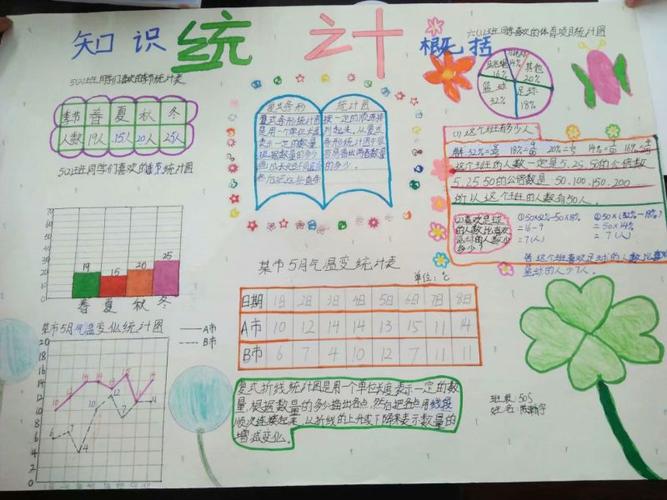 知识 统计 概括
502班同学们喜欢的季节统计表
季节 春 夏 秋 冬
人数 19人 15人 20人 25人
502班同学们喜欢的季节统计图
80
70
60
50
40
30
20
10
0
19 15 20 25
春 夏 秋 冬
复式条形 统计图
复式条形统计图
是用一个单位长度
表示一定的数量
根据数量的多少
同学喜欢的体育项目统计图
其他
20%
16%
14%
篮球
32%
足球
18%
(1)这个班有多少人
这个班的人数一定是5.25.50的公倍数
5.25.50的公倍数是 50.100.150.200
所以这个班的人数有50人.
(2)喜欢足球
的人数比喜欢
篮球的人数少
多少?
①50×32%-50×18%
=16-9
=7(人)
②50×(32%-18%)
=50×14%
=7(人)
答:这个班喜欢足球的人数比喜欢
篮球的人少7人.
某市5月气温变化统计表
单位:℃
日期 1日 2日 3日 4日 5日 6日 7日 8日
A市 10 12 14 14 13 15 11 14
B市 6 7 4 10 12 7 11 11
某市5月气温变化统计图
A市
B市
20
18
16
14
12
10
8
6
4
2
0
复式折线统计图是用一个单位长度表示一定的数
量,根据数量的多少描出各点,然后把各点用线段
顺次连接起来,以折线的上升或下降来表示数量的
增减变化.
班级:505
姓名: